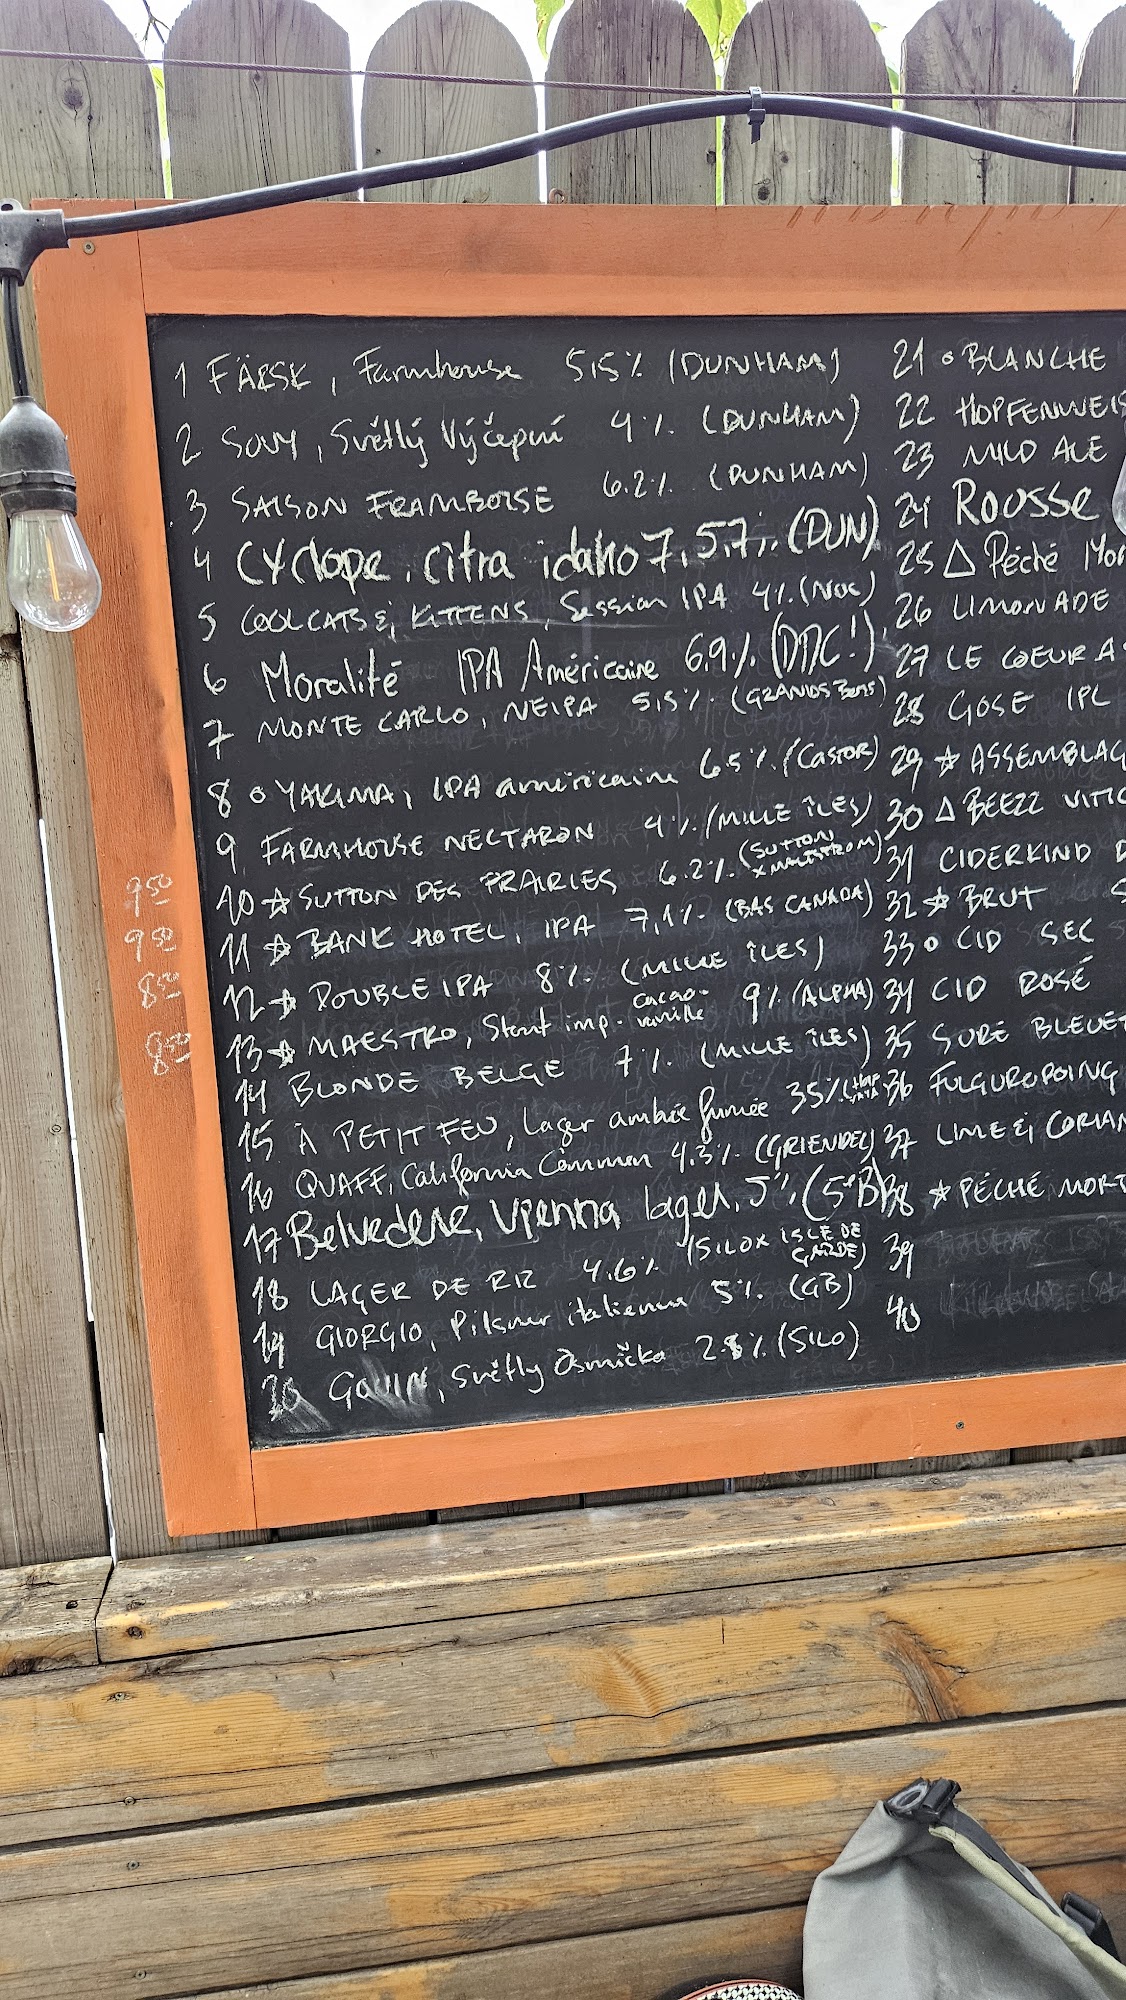 1 FÄRSK, Farmhouse 5,5% (DUNHAM)
2 SOUY, Světlý Výčepní 4% (DUNHAM)
3 SAISON FRAMBOISE 6.2% (DUNHAM)
4 Cyclope, citra idaho 7, 5,7% (DUN)
5 COOL CATS & KITTENS, Session IPA 4% (NOC)
6 Moralité IPA Américaine 6.9% (DDC!)
7 MONTE CARLO, NEIPA 5,5% (GRANDS BOIS)
8 o YAKIMA, IPA américaine 6.5% (CASTOR)
9 FARMHOUSE NECTARON 4% (MILLE ÎLES)
10 ☆ SUTTON DES PRAIRIES 6.2% (SUTTON X MALSTROM)
11 ☆ BANK HOTEL, IPA 7,1% (BAS CANADA)
12 ☆ DOUBLE IPA 8% (MILLE ÎLES)
13 ☆ MAESTRO, Stout imp. cacao-vanille 9% (ALPHA)
14 BLONDE BELGE 7% (MILLE ÎLES)
15 À PETIT FEU, Lager ambrée fumée 3.5%
16 QUAFF, California Common 4.3% (GRIENDEL)
17 Belvedere, Vienna lager, 5% (5e B)
18 LAGER DE RIZ 4.6% (SILO X ISLE DE GARDE)
19 GIORGIO, Pilsner italienne 5% (GB)
20 GOUIN, Světly Osmička 2.8% (SILO)
21 o BLANCHE
22 HOPFENWEIS
23 MILD ALE
24 ROUSSE
25 △ Péché Mor
26 LIMONADE
27 LE COEUR A
28 GOSE IPL
29 ☆ ASSEMBLAG
30 △ BEEZZ VITIC
31 CIDERKIND D
32 ☆ BRUT 5
33 o CID SEC
34 CID ROSÉ
35 SURE BLEUET
36 FULGUROPOING
37 LIME & CORIAN
38 ☆ PÉCHÉ MORT
39
40
9 50
9 50
8 50
8 50